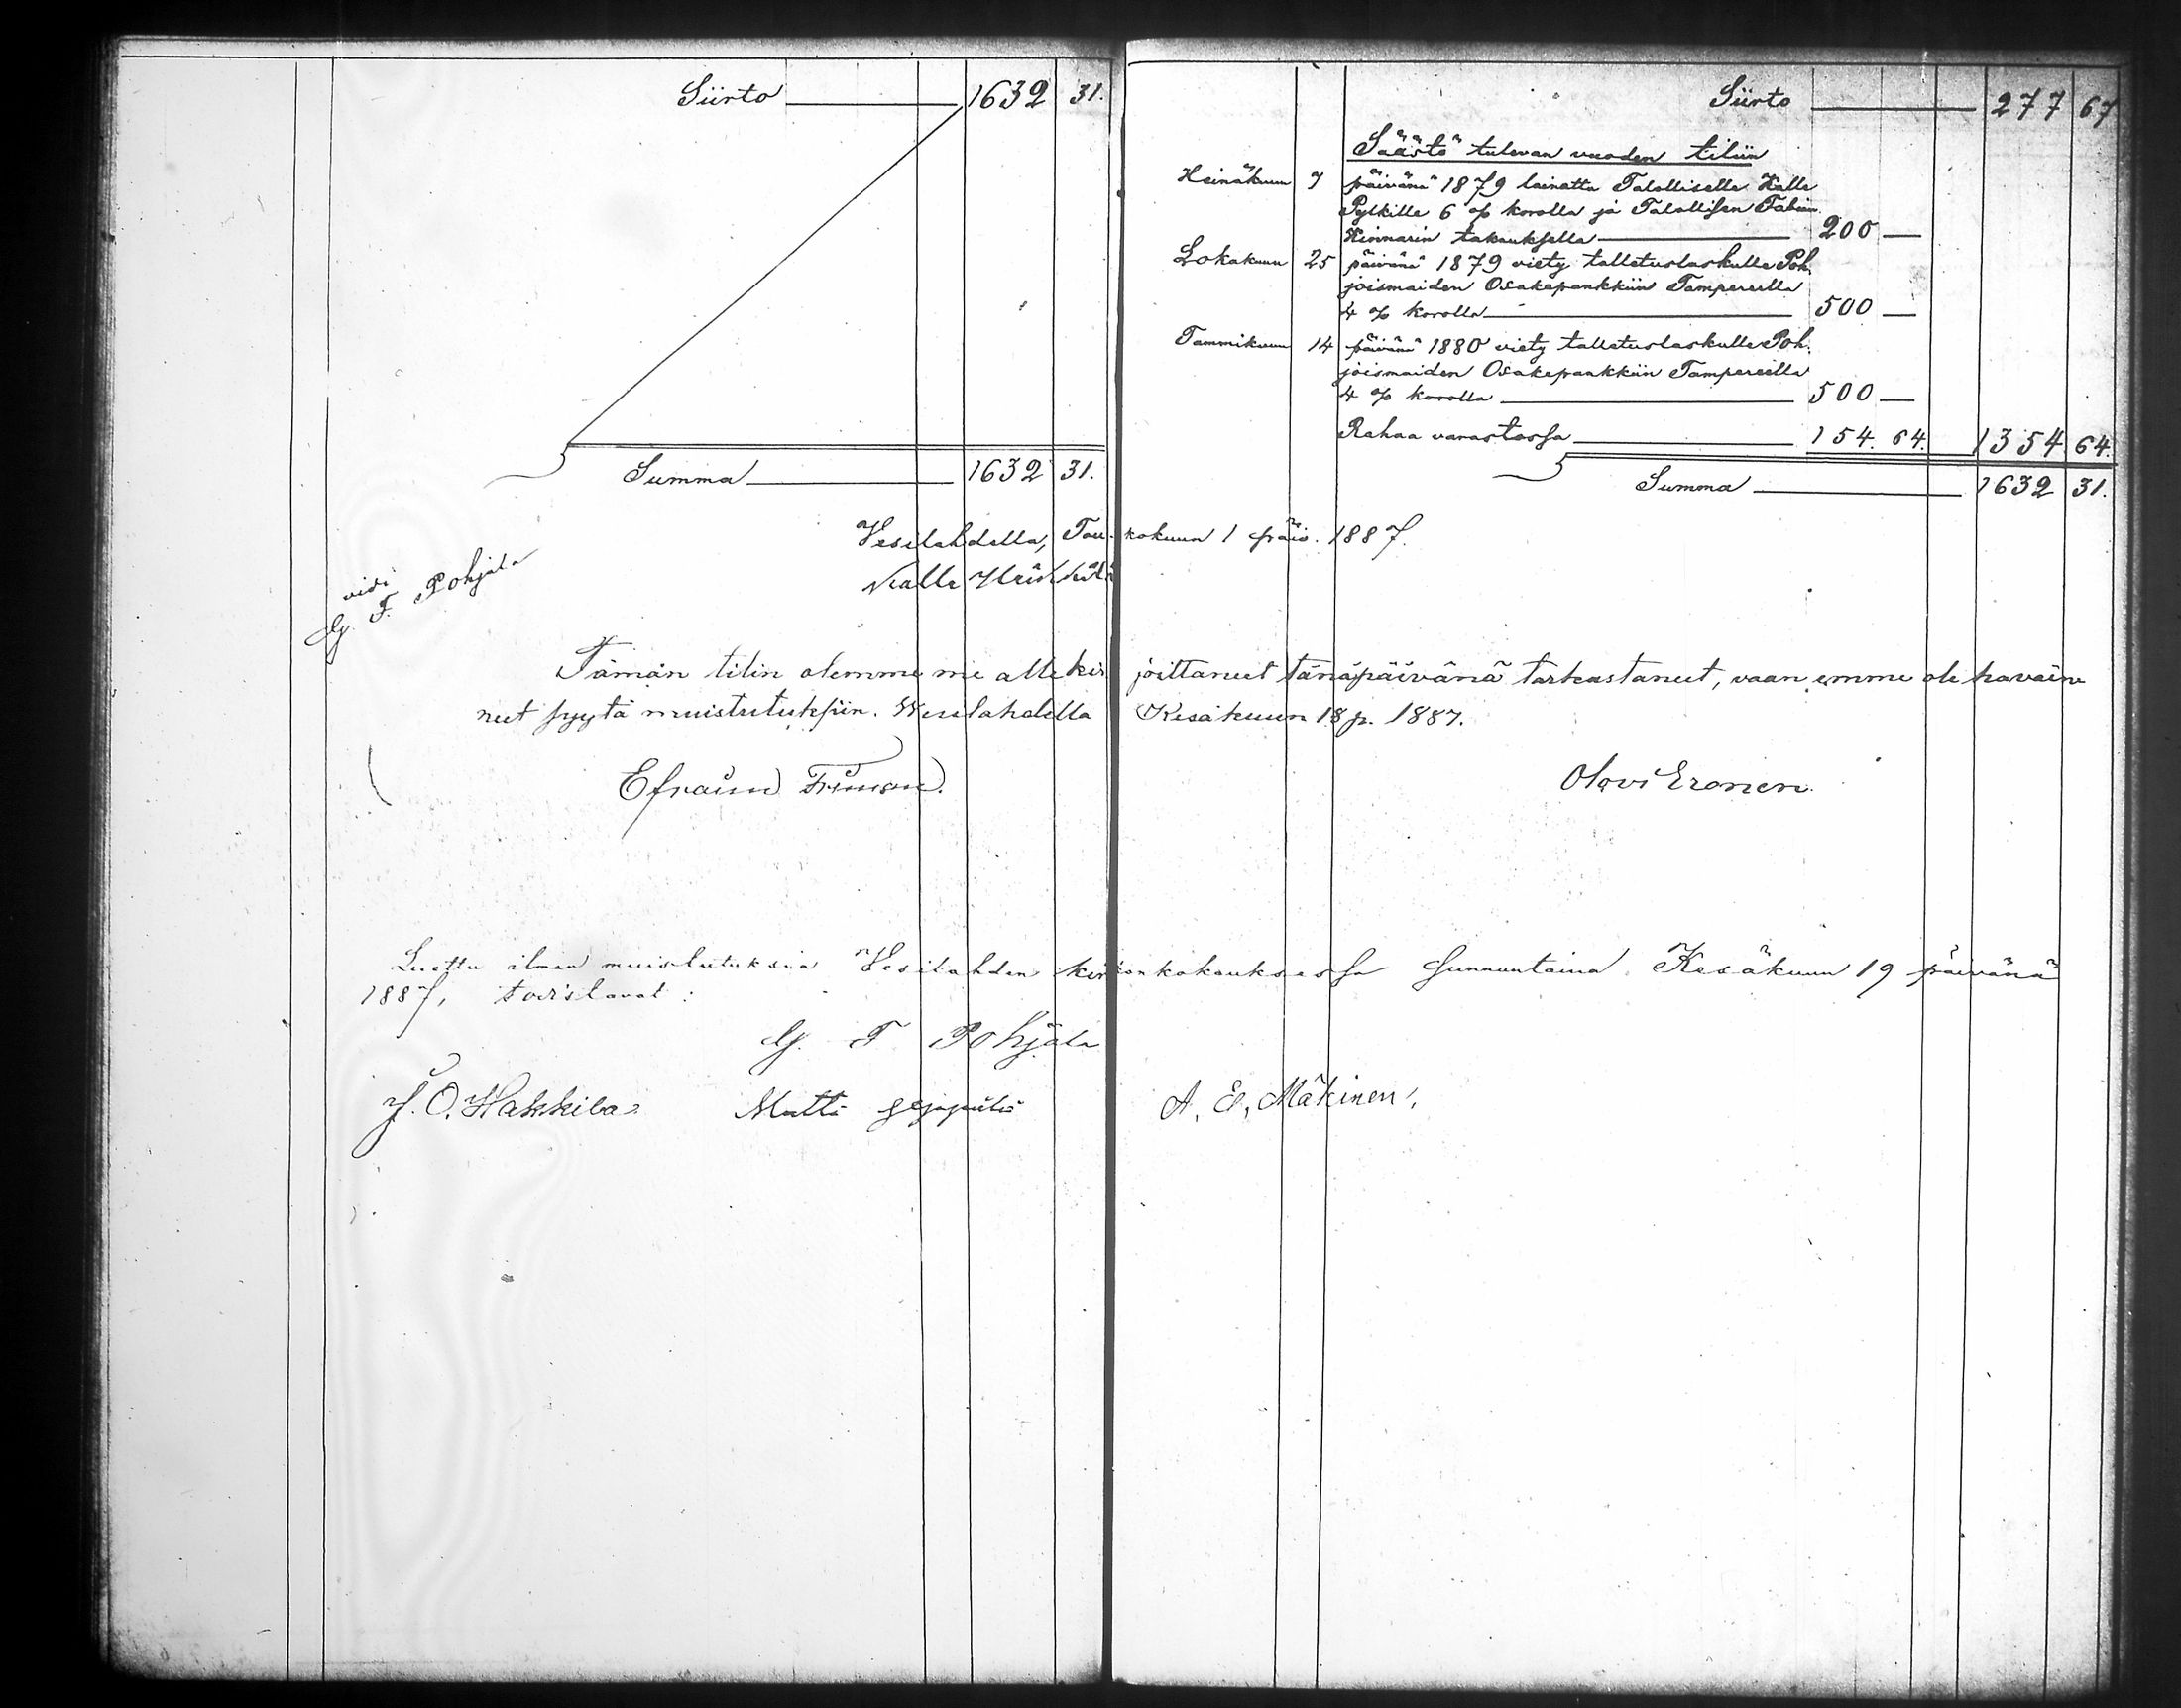 Siirto 1632 31.
Summa 1632 31.
Siirto 277 67
Säästö tulevan vuoden tiliin
Heinäkuun 7 päivänä 1879 lainattu Talolliselle Kalle
Pylkille 6 % korolla ja Talollisen Fabian
Hinnarin takauksella 200 —
Lokakuun 25 päivänä 1879 viety talletuslaskulle Poh.
joismaiden Osakepankkiin Tampereella
4 % korolla 500 —
Tammikuun 14 päivänä 1880 viety talletuslaskulle Poh.
joismaiden Osakepankkiin Tampereella
4 % korolla 500 —
Rahaa varastossa 154. 64. 1354 64.
Summa 1632 31.
Vesilahdella, Toukokuun 1 päiv. 1887.
Kalle
vidi
G. F. Pohjala
Tämän tilin olemme me allekirjoittaneet tänäpäivänä tarkastaneet, vaan emme ole havain
neet syytä muistutuksiin. Wesilahdella Kesäkuun 18 p. 1887.
Efraim Friman.
Olavi Eronen.
Luettu ilman muistutuksia Vesilahden kirkonkokouksessa sunnuntaina Kesäkuun 19 päivänä
1887, todistavat:
G. F Pohjala
J. O. Hakkila
Matti
A. E. Mäkinen.